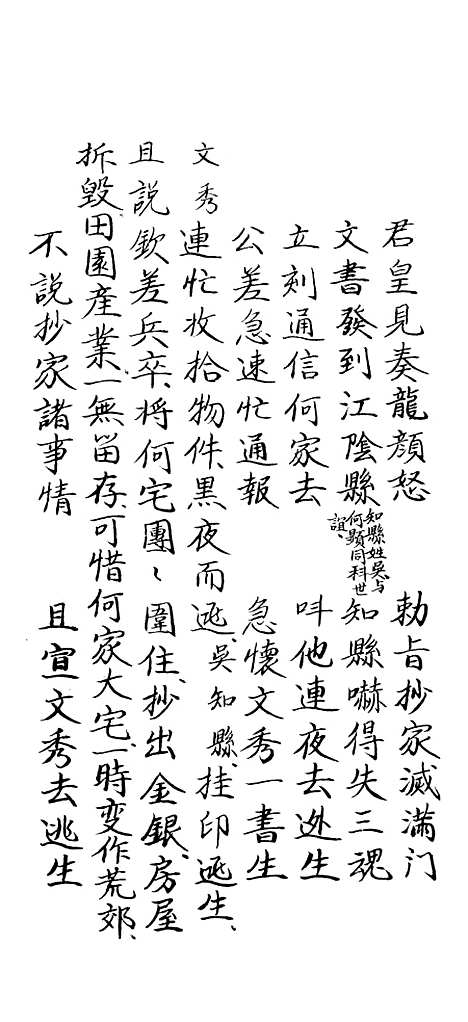 君皇見奏龍顏怒　勅旨抄家滅滿门
文書發到江陰縣　知縣姓吳与何顯同科世誼、　知縣嚇得失三魂
立刻通信何家去　呌他連夜去逃生
公差急速忙通報　急懷文秀一書生
文秀連忙收拾物件、黒夜而逃、吳知縣、挂印逃生、
且説欽差兵卒、将何宅團〻圍住、抄出金銀、房屋
拆毀、田園産業、一無畄存、可惜何家大宅、一時变作荒郊、
不説抄家諸事情　且宣文秀去逃生